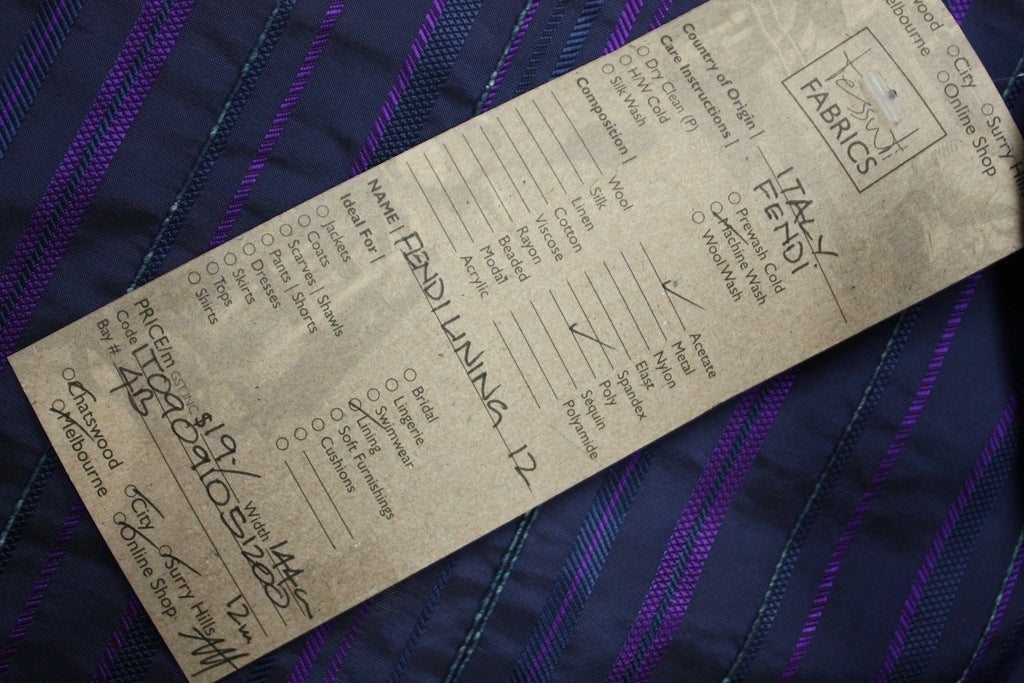 tessuti
FABRICS
Country of Origin | ITALY
FENDI
Care Instructions |
Dry Clean (P)
H/W Cold
Silk Wash
Prewash Cold
Machine Wash
Wool Wash
Composition |
Wool
Silk
Linen
Cotton
Viscose
Rayon
Beaded
Modal
Acrylic
Acetate
Metal
Nylon
Elast
Spandex
Poly
Sequin
Polyamide
NAME | FENDI LINING 12
Ideal For |
Jackets
Coats
Scarves | Shawls
Pants | Shorts
Dresses
Skirts
Tops
Shirts
Bridal
Lingerie
Swimwear
Lining
Soft Furnishings
Cushions
PRICE/m GST INC $19./ Width 144c
Code IT090910S1200
Bay # 4B 12m
Chatswood City Surry Hills
Melbourne Online Shop
wood City Surry Hi
elbourne Online Shop